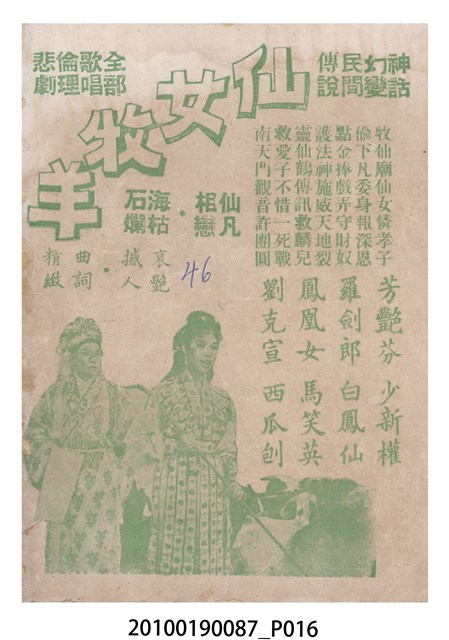 神話幻變民間傳說
全部歌唱倫理悲劇
仙女牧羊
仙凡相戀・海枯石爛
哀艷撼人・曲詞精緻
牧仙廟仙女憐孝子
偷下凡委身報深恩
點金捧戲弄守財奴
護法神施威天地裂
靈仙鶴傳訊救麟兒
救愛子不惜一死戰
南天門觀音許團圓
46
芳艷芬 少新權
羅劍郎 白鳳仙
鳳凰女 馬笑英
劉克宣 西瓜刨
20100190087_P016